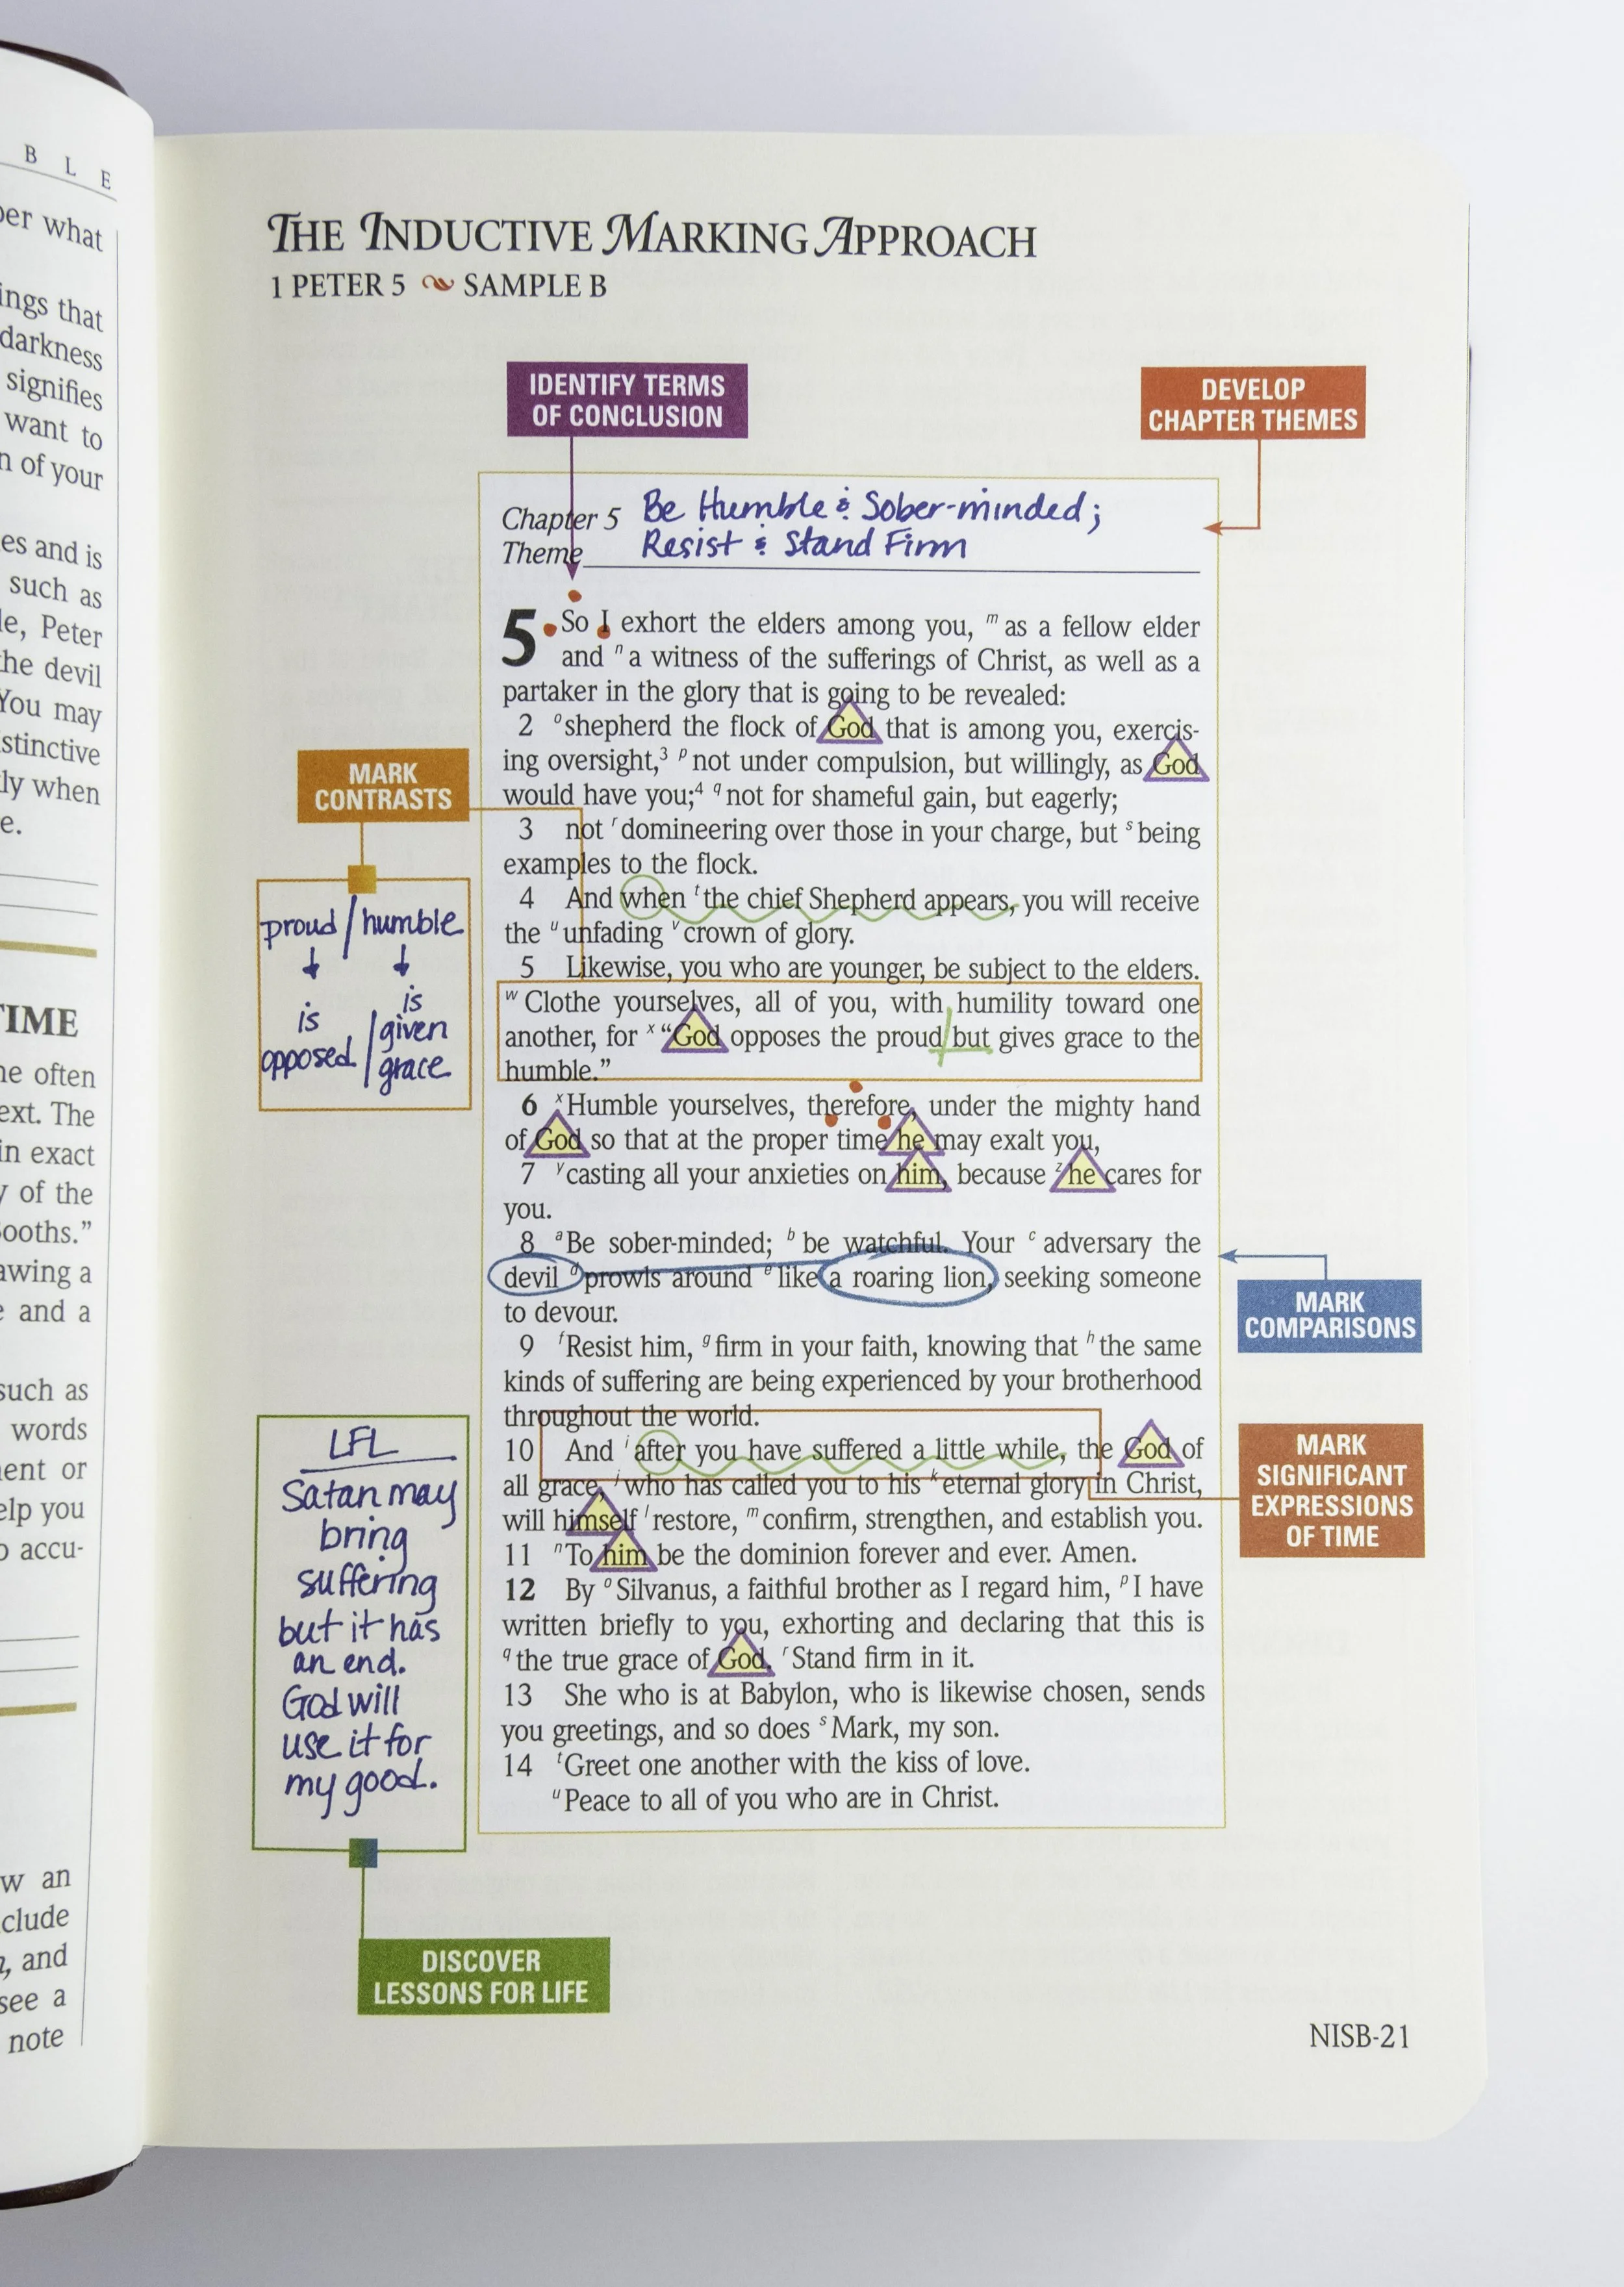 B L E
per what
ings that
darkness
signifies
want to
n of your
es and is
such as
le, Peter
the devil
You may
stinctive
ly when
e.
TIME
ne often
ext. The
in exact
y of the
Booths."
awing a
e and a
such as
words
ent or
elp you
o accu-
w an
clude
n, and
see a
note
THE INDUCTIVE MARKING APPROACH
1 PETER 5 SAMPLE B
IDENTIFY TERMS
OF CONCLUSION
DEVELOP
CHAPTER THEMES
Chapter 5 Be Humble & Sober-minded;
Theme Resist & Stand Firm
5 So I exhort the elders among you, m as a fellow elder
and n a witness of the sufferings of Christ, as well as a
partaker in the glory that is going to be revealed:
2 o shepherd the flock of God that is among you, exercis-
ing oversight,3 p not under compulsion, but willingly, as God
would have you;4 q not for shameful gain, but eagerly;
3 not r domineering over those in your charge, but s being
examples to the flock.
4 And when t the chief Shepherd appears, you will receive
the u unfading v crown of glory.
5 Likewise, you who are younger, be subject to the elders.
w Clothe yourselves, all of you, with humility toward one
another, for x “God opposes the proud but gives grace to the
humble.”
6 x Humble yourselves, therefore, under the mighty hand
of God so that at the proper time he may exalt you,
7 y casting all your anxieties on him, because z he cares for
you.
8 a Be sober-minded; b be watchful. Your c adversary the
devil d prowls around e like a roaring lion, seeking someone
to devour.
9 f Resist him, g firm in your faith, knowing that h the same
kinds of suffering are being experienced by your brotherhood
throughout the world.
10 And i after you have suffered a little while, the God of
all grace, j who has called you to his k eternal glory in Christ,
will himself l restore, m confirm, strengthen, and establish you.
11 n To him be the dominion forever and ever. Amen.
12 By o Silvanus, a faithful brother as I regard him, p I have
written briefly to you, exhorting and declaring that this is
q the true grace of God. r Stand firm in it.
13 She who is at Babylon, who is likewise chosen, sends
you greetings, and so does s Mark, my son.
14 t Greet one another with the kiss of love.
u Peace to all of you who are in Christ.
MARK
CONTRASTS
proud / humble
is
opposed / is
given
grace
MARK
COMPARISONS
LFL
Satan may
bring
suffering
but it has
an end.
God will
use it for
my good.
MARK
SIGNIFICANT
EXPRESSIONS
OF TIME
DISCOVER
LESSONS FOR LIFE
NISB-21